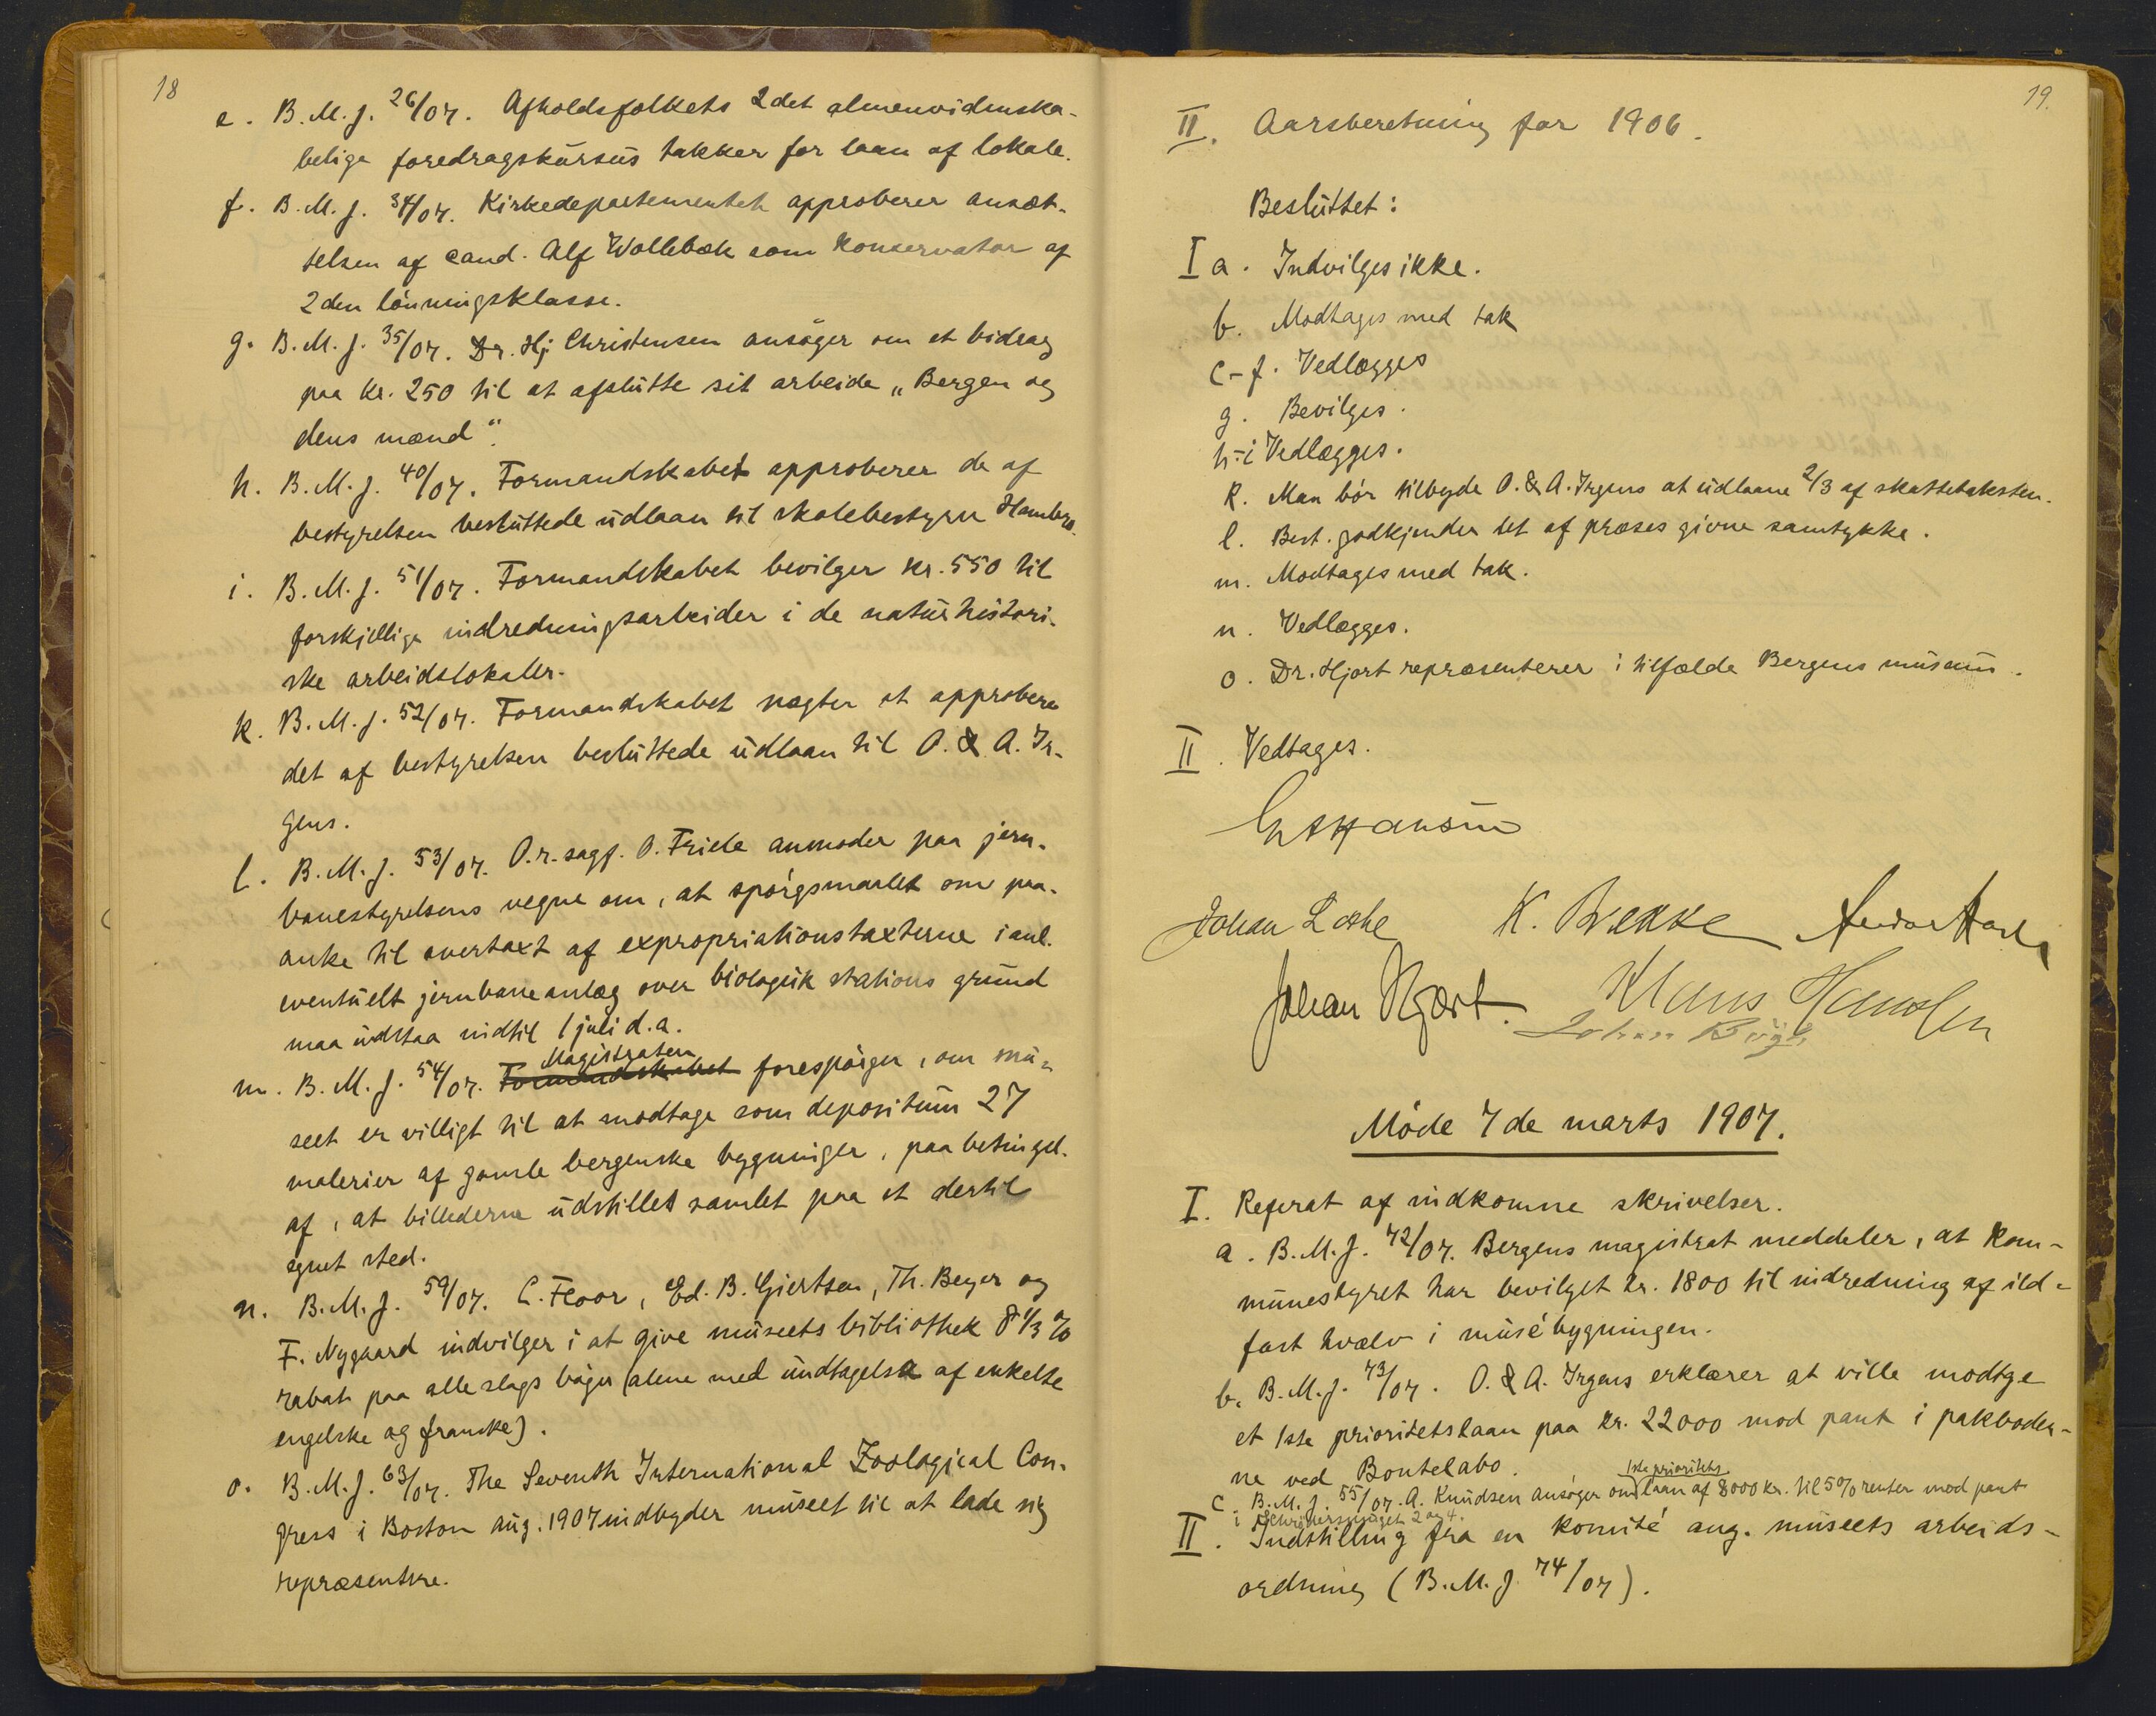 18
e. B. M. J. 26/07. Afholdsfolkets 2det almenvidenska-
belige foredragskursus takker for laan af lokale.
f. B. M. J. 34/07. Kirkedepartementet approberer ansæt-
telsen af cand. Alf Wollebæk som konservator af
2den lönningsklasse.
g. B. M. J. 35/07. Dr. Hj. Christensen ansöger om et bidrag
paa kr. 250 til at afslutte sit arbeide „Bergen og
dens mænd“.
h. B. M. J. 40/07. Formandskabet approberer de af
bestyrelsen besluttede udlaan til skolebestyrer Hambro.
i. B. M. J. 51/07. Formandskabet bevilger kr. 550 til
forskjellige indredningsarbeider i de naturhistori-
ske arbeidslokaler.
k. B. M. J. 52/07. Formandskabet nægter at approbere
det af bestyrelsen besluttede udlaan til O. & A. Ir-
gens.
l. B. M. J. 53/07. O.r.sagf. O. Friele anmoder paa jern-
banestyrelsens vegne om, at spörgsmaalet om paa-
anke til overtaxt af expropriationstaxterne i anl.
eventuelt jernbaneanlæg over biologisk stations grund
maa udstaa indtil 1 juli d.a.
Magistraten
m. B. M. J. 54/07. Formandskabet forespörger, om mu-
seet er villigt til at modtage som depositum 27
malerier af gamle bergenske bygninger, paa betingel.
af, at billederne udstilles samlet paa et dertil
egnet sted.
n. B. M. J. 59/07. C. Floor, Ed. B. Giertsen, Th. Beyer og
F. Nygaard indvilger i at give museets bibliothek 8 1/3 %
rabat paa alle slags böger (alene med undtagelse af enkelte
engelske og franske).
o. B. M. J. 63/07. The Seventh International Zoological Con-
gress i Boston aug. 1907 indbyder museet til at lade sig
repræsentere.
19.
II. Aarsberetning for 1906.
Besluttet:
I a. Indvilges ikke.
b. Modtages med tak
c-f. Vedlægges
g. Bevilges.
h-i Vedlægges.
k. Man bör tilbyde O. & A. Irgens at udlaane 2/3 af skattetaksten.
l. Best. godkjender det af præses givne samtykke.
m. Modtages med tak.
n. Vedlægges.
o. Dr. Hjort repræsenterer i tilfælde Bergens museum.
II. Vedtages.
Johan Lothe K. Brekke
Johan Hjort. Klaus Hanssen
Johan Bögh
Möde 7de marts 1907.
I. Referat af indkomne skrivelser.
a. B. M. J. 72/07. Bergens magistrat meddeler, at kom-
munestyret har bevilget kr. 1800 til indredning af ild-
fast hvælv i musébygningen.
b. B. M. J. 73/07. O. & A. Irgens erklærer at ville modtge
et 1ste prioritetslaan paa kr. 22000 mod pant i pakboder-
ne ved Bontelabo.
1ste prioritets
c. B. M. J. 55/07. A. Knudsen ansöger om laan af 8000 kr. til 5% renter mod pant
i Schrödersmuget 2 og 4.
II. Indstilling fra en komité ang. museets arbeids-
ordning (B. M. J. 74/07).